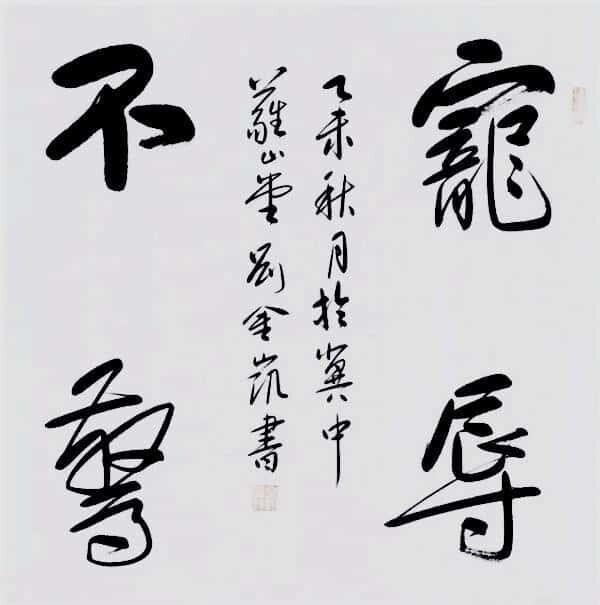 寵辱
乙未秋月於冀中
山堂劉金凱書
不驚